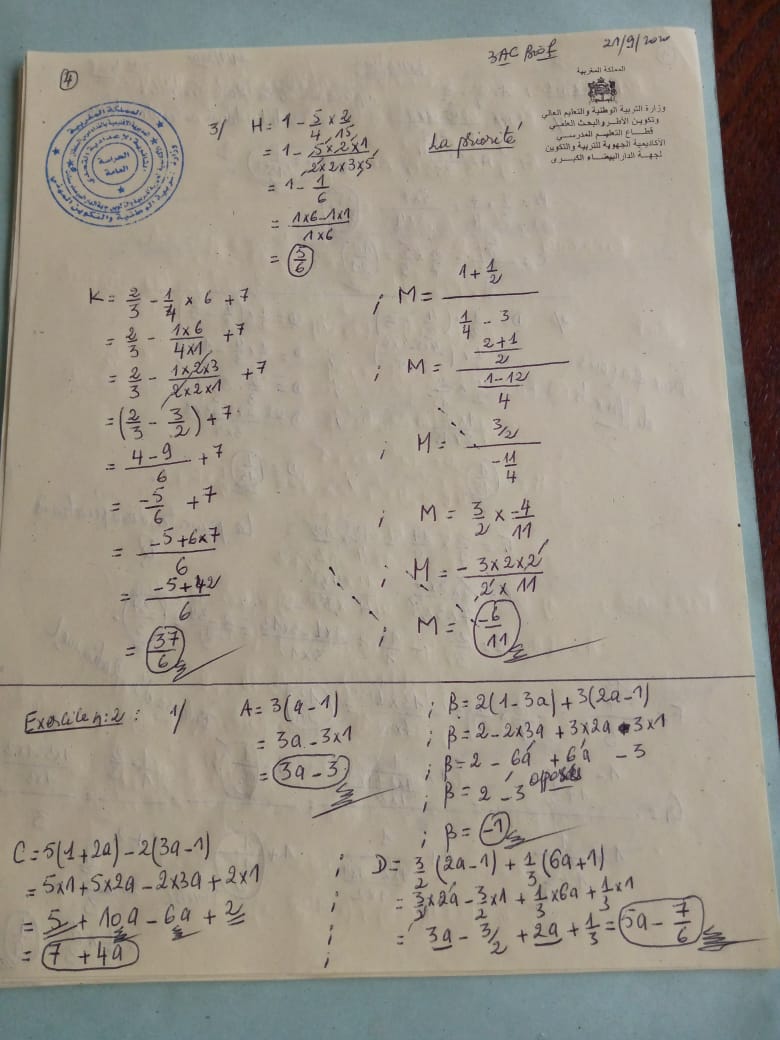 4
3AC Biof
21/9/2020
المملكة المغربية
وزارة التربية الوطنية والتعليم العالي
وتكوين الأطر والبحث العلمي
قطاع التعليم المدرسي
الأكاديمية الجهوية للتربية والتكوين
لجهة الدار البيضاء الكبرى
المملكة المغربية
الحراسة
العامة
3/ H = 1 - 5/4 × 2/15
La priorité
= 1 - (5×2×1)/(2×2×3×5)
= 1 - 1/6
= (1×6-1×1)/(1×6)
= 5/6
K = 2/3 - 1/4 × 6 + 7
= 2/3 - (1×6)/(4×1) + 7
= 2/3 - (1×2×3)/(2×2×1) + 7
= (2/3 - 3/2) + 7
= (4-9)/6 + 7
= -5/6 + 7
= (-5+6×7)/6
= (-5+42)/6
= 37/6
; M = (1+1/2)/(1/4 - 3)
; M = ((2+1)/2)/((1-12)/4)
; M = (3/2)/(-11/4)
; M = 3/2 × -4/11
; M = (-3×2×2)/(2×11)
; M = -6/11
Exercice n:2 : 1/
A = 3(a-1)
= 3a-3×1
= 3a-3
; B = 2(1-3a)+3(2a-1)
; B = 2-2×3a+3×2a-3×1
; B = 2 - 6a + 6a - 3
; B = 2 - 3 opposés
; B = -1
C = 5(1+2a)-2(3a-1)
= 5×1+5×2a-2×3a+2×1
= 5 + 10a - 6a + 2
= 7 + 4a
; D = 3/2 (2a-1) + 1/3 (6a+1)
= 3/2 × 2a - 3/2 × 1 + 1/3 × 6a + 1/3 × 1
= 3a - 3/2 + 2a + 1/3 = 5a - 7/6